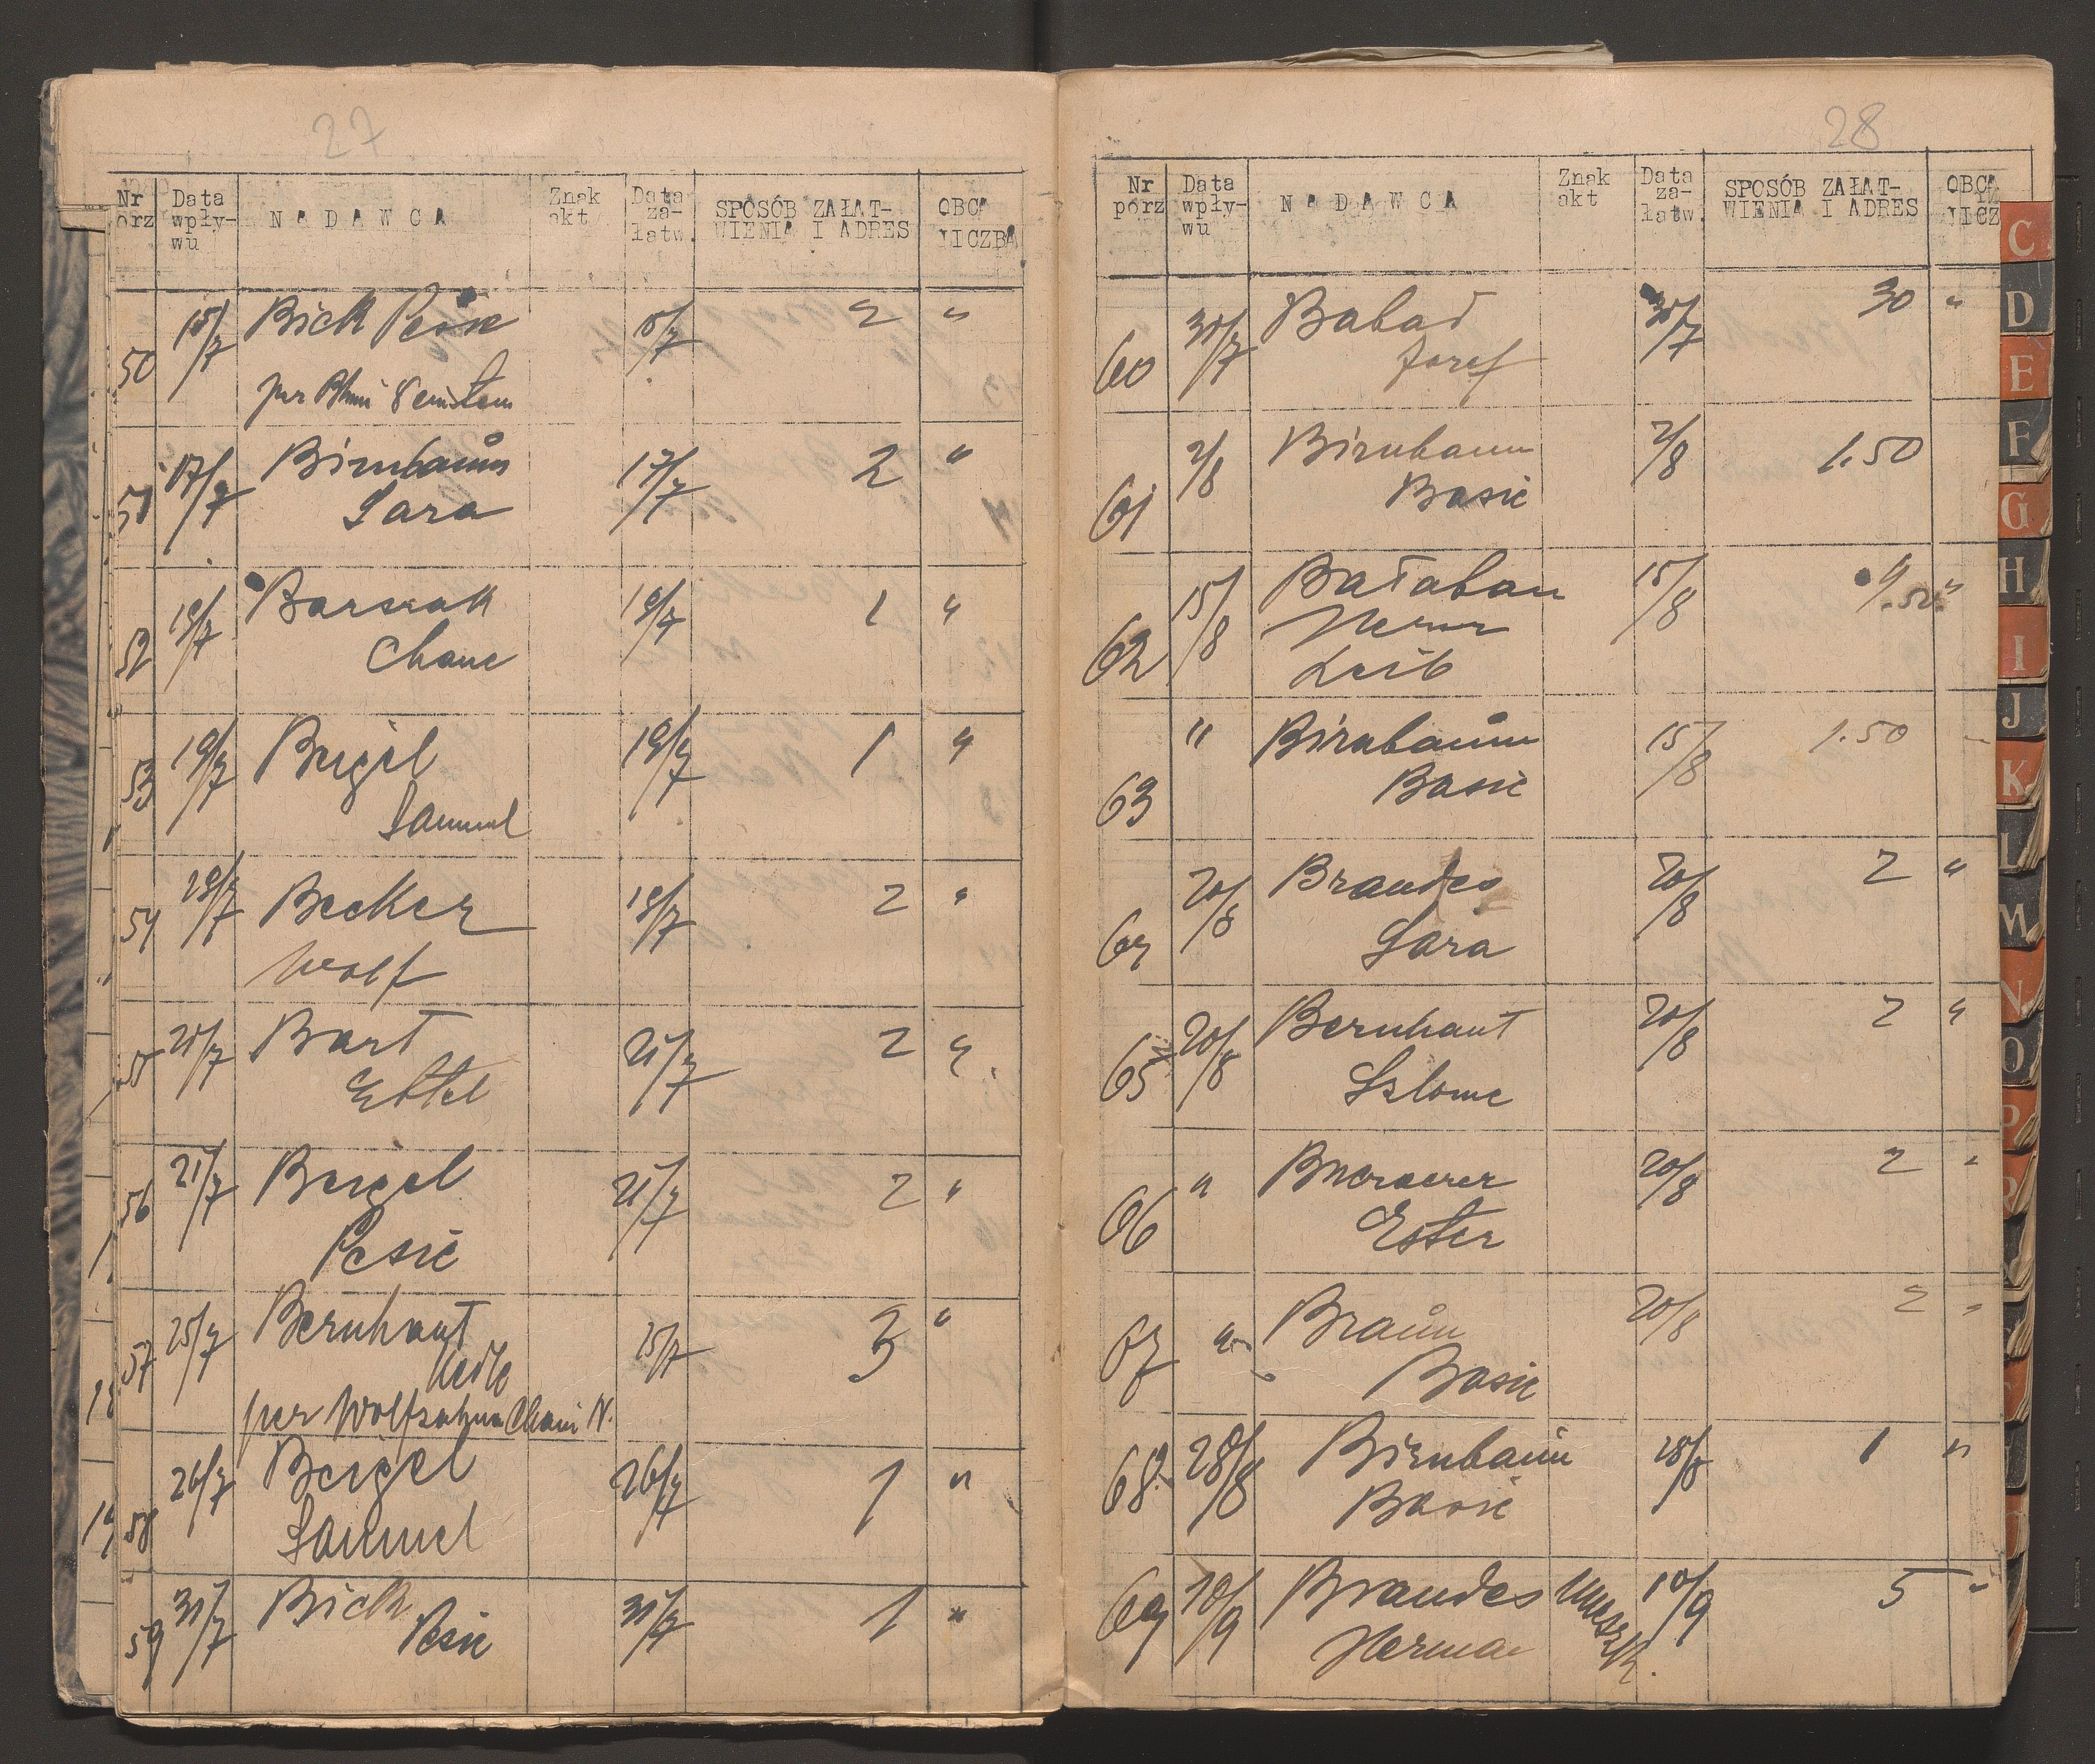 27
Nr porz
Data wpły- wu
NADAWCA
Znak akt
Data za- łatw.
SPOSÓB ZAŁAT- WIENIA I ADRES
OBCA LICZBA
50 15/7 Bick Pesie 15/7 2 "
per
51 17/7 Birnbaum 17/7 2 "
Sara
52 19/7 Barszak 19/7 1 "
Chane
53 19/7 Beigel 19/7 1 "
Samuel
54 19/7 Becker 19/7 2 "
Wolf
55 21/7 Bart 21/7 2 "
Ettel
56 21/7 Beigel 21/7 2 "
Pesie
57 25/7 Bernhaut 25/7 3 "
per Chaim N.
58 26/7 Beigel 26/7 1 "
Samuel
59 31/7 Bick 31/7 1 "
Pesie
28
Nr porz
Data wpły- wu
NADAWCA
Znak akt
Data za- łatw.
SPOSÓB ZAŁAT- WIENIA I ADRES
OBCA LICZ
60 31/7 Babad 31/7 30 "
Josef
61 2/8 Birnbaum 2/8 1.50
Basie
62 15/8 Bałaban 15/8 1.50 "
Leib
63 " Birnbaum 15/8 1.50
Basie
64 20/8 Brandes 20/8 2 "
Sara
65 20/8 Bernhaut 20/8 2 "
Szlome
66 " 20/8 2 "
Ester
67 " Braun 20/8 2 "
Basie
68 28/8 Birnbaum 28/8 1 "
Basie
69 10/9 Brandes 10/9 5 "
Herman
C
D
E
F
G
H
I
J
K
L
M
N
O
P
R